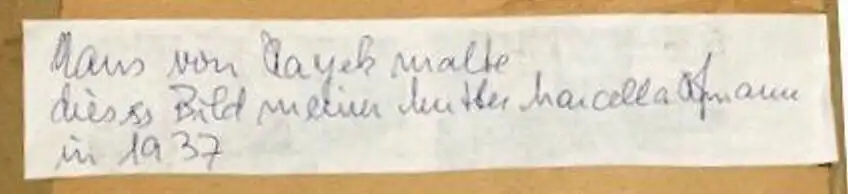 Hans von Hayek malte
dieses Bild meiner Mutter Marcella
in 1937